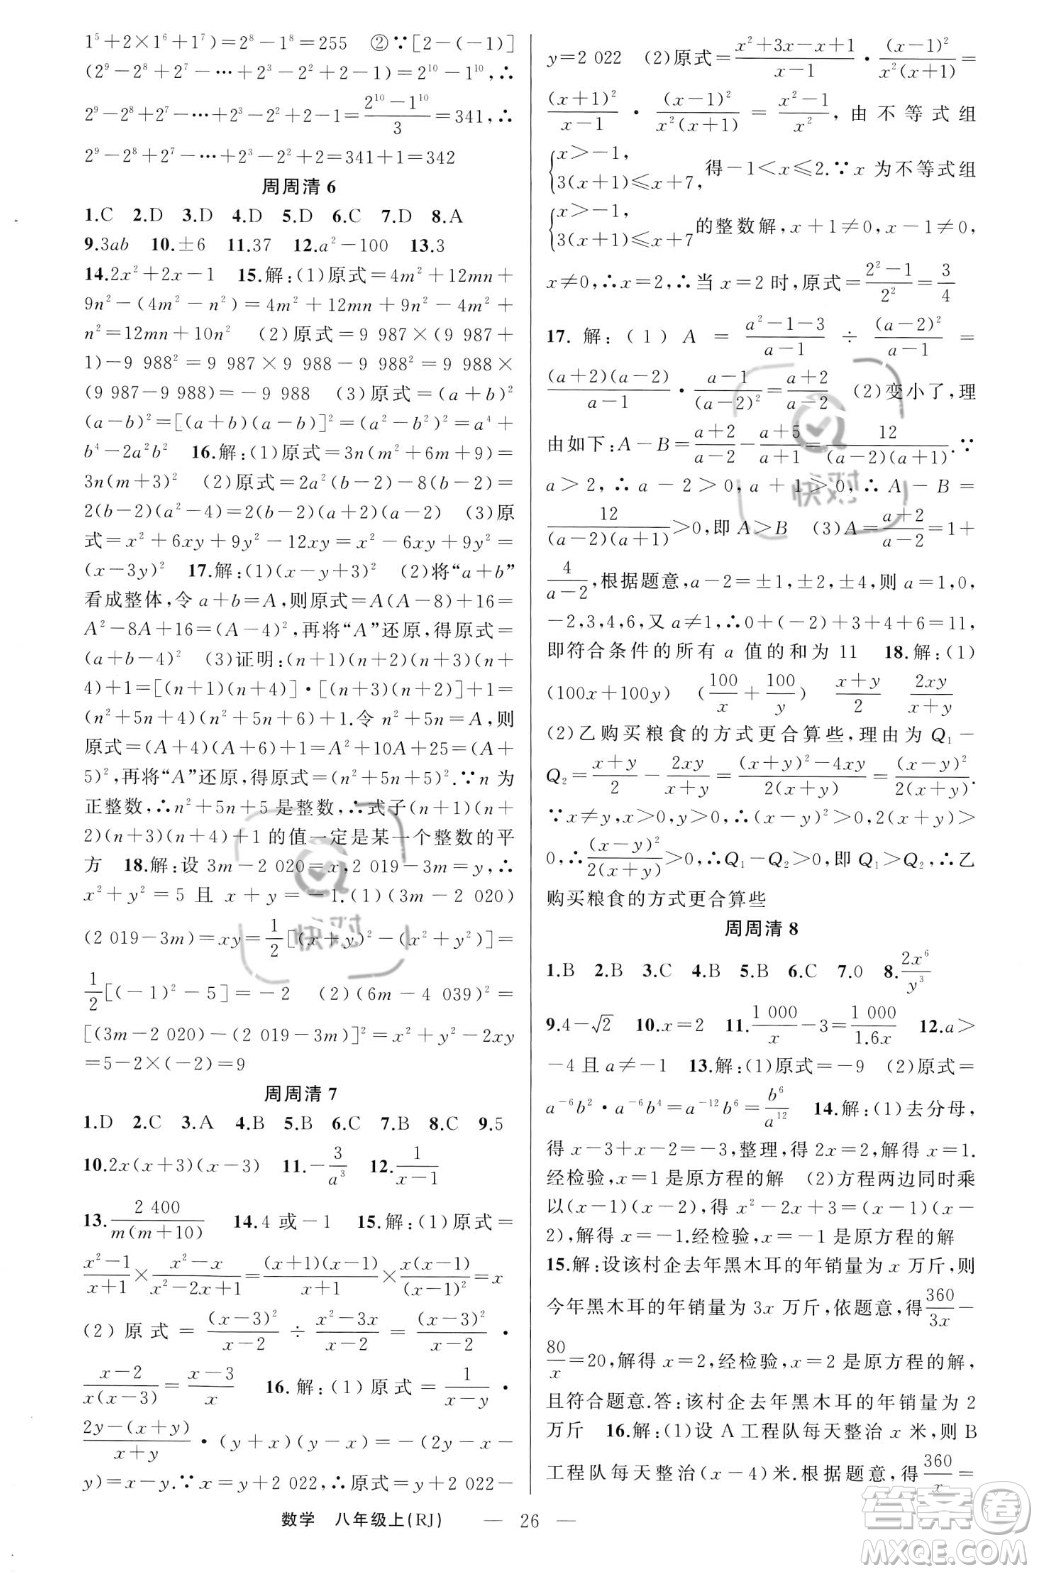 1⁵+2×1⁶+1⁷)=2⁸-1⁸=255 ②∵[2-(-1)]
(2⁹-2⁸+2⁷-…+2³-2²+2-1)=2¹⁰-1¹⁰,∴
2⁹-2⁸+2⁷-…+2³-2²+2-1=(2¹⁰-1¹⁰)/3=341,∴
2⁹-2⁸+2⁷-…+2³-2²+2=341+1=342
周周清6
1.C 2.D 3.D 4.D 5.D 6.C 7.D 8.A
9.3ab 10.±6 11.37 12.a²-100 13.3
14.2x²+2x-1 15.解:(1)原式=4m²+12mn+
9n²-(4m²-n²)=4m²+12mn+9n²-4m²+
n²=12mn+10n² (2)原式=9 987×(9 987+
1)-9 988²=9 987×9 988-9 988²=9 988×
(9 987-9 988)=-9 988 (3)原式=(a+b)²
(a-b)²=[(a+b)(a-b)]²=(a²-b²)²=a⁴+
b⁴-2a²b² 16.解:(1)原式=3n(m²+6m+9)=
3n(m+3)² (2)原式=2a²(b-2)-8(b-2)=
2(b-2)(a²-4)=2(b-2)(a+2)(a-2) (3)原
式=x²+6xy+9y²-12xy=x²-6xy+9y²=
(x-3y)² 17.解:(1)(x-y+3)² (2)将“a+b”
看成整体,令a+b=A,则原式=A(A-8)+16=
A²-8A+16=(A-4)²,再将“A”还原,得原式=
(a+b-4)² (3)证明:(n+1)(n+2)(n+3)(n+
4)+1=[(n+1)(n+4)]·[(n+2)(n+3)]+1=
(n²+5n+4)(n²+5n+6)+1.令n²+5n=A,则
原式=(A+4)(A+6)+1=A²+10A+25=(A+
5)²,再将“A”还原,得原式=(n²+5n+5)².∵n为
正整数,∴n²+5n+5是整数,∴式子(n+1)(n+
2)(n+3)(n+4)+1的值一定是某一个整数的平
方 18.解:设3m-2 020=x,2 019-3m=y,∴
x²+y²=5且x+y=-1.(3m-2 020)
(2 019-3m)=xy=1/2[(x+y)²-(x²+y²)]=
1/2[(-1)²-5]=-2 (2)(6m-4 039)²=
[(3m-2 020)-(2 019-3m)]²=x²+y²-2xy
=5-2×(-2)=9
周周清7
1.D 2.C 3.A 4.B 5.B 6.B 7.B 8.C 9.5
10.2x(x+3)(x-3) 11.-3/a³ 12.1/(x-1)
13.2 400/m(m+10) 14.4或-1 15.解:(1)原式=
(x²-1)/(x+1)×(x²-x)/(x²-2x+1)=(x+1)(x-1)/(x+1)×x(x-1)/(x-1)²=x
(2)原式=(x-3)²/(x-2)÷(x²-3x)/(x-2)=(x-3)²/(x-2)·
(x-2)/x(x-3)=(x-3)/x 16.解:(1)原式=1/(x-y)·
[2y-(x+y)]/(x+y)·(y+x)(y-x)=-(2y-x-
y)=x-y.∵x=y+2 022,∴原式=y+2 022-
y=2 022 (2)原式=(x²+3x-x+1)/(x-1)·(x-1)²/x²(x+1)=
(x+1)²/(x-1)·(x-1)²/x²(x+1)=(x²-1)/x².由不等式组
{x>-1,3(x+1)≤x+7,得-1<x≤2.∵x为不等式组
{x>-1,3(x+1)≤x+7的整数解,x+1≠0,x-1≠0,
x≠0,∴x=2,∴当x=2时,原式=(2²-1)/2²=3/4
17.解:(1)A=(a²-1-3)/(a-1)÷(a-2)²/(a-1)=
(a+2)(a-2)/(a-1)·(a-1)/(a-2)²=(a+2)/(a-2) (2)变小了,理
由如下:A-B=(a+2)/(a-2)-(a+5)/(a+1)=12/(a-2)(a+1).∵
a>2,∴a-2>0,a+1>0,∴A-B=
12/(a-2)(a+1)>0,即A>B (3)A=(a+2)/(a-2)=1+
4/(a-2),根据题意,a-2=±1,±2,±4,则a=1,0,
-2,3,4,6,又a≠1,∴0+(-2)+3+4+6=11,
即符合条件的所有a值的和为11 18.解:(1)
(100x+100y) (100/x+100/y) (x+y)/2 2xy/(x+y)
(2)乙购买粮食的方式更合算些,理由为Q₁-
Q₂=(x+y)/2-2xy/(x+y)=[(x+y)²-4xy]/2(x+y)=(x-y)²/2(x+y).
∵x≠y,x>0,y>0,∴(x-y)²>0,2(x+y)>
0,∴(x-y)²/2(x+y)>0,∴Q₁-Q₂>0,即Q₁>Q₂,∴乙
购买粮食的方式更合算些
周周清8
1.B 2.B 3.C 4.B 5.B 6.C 7.0 8.2x⁶/y³
9.4-√2 10.x=2 11.1 000/x-3=1 000/1.6x 12.a>
-4且a≠-1 13.解:(1)原式=-9 (2)原式=
a⁻⁶b²·a⁻⁶b⁴=a⁻¹²b⁶=b⁶/a¹² 14.解:(1)去分母,
得x-3+x-2=-3,整理,得2x=2,解得x=1.
经检验,x=1是原方程的解 (2)方程两边同时乘
以(x-1)(x-2),得x²-2x+3=(x-1)(x-
2),解得x=-1.经检验,x=-1是原方程的解
15.解:设该村企去年黑木耳的年销量为x万斤,则
今年黑木耳的年销量为3x万斤,依题意,得360/3x-
80/x=20,解得x=2,经检验,x=2是原方程的解,
且符合题意.答:该村企去年黑木耳的年销量为2
万斤 16.解:(1)设A工程队每天整治x米,则B
工程队每天整治(x-4)米.根据题意,得360/x=
数学 八年级上(RJ) — 26 —
快对
快对
答案圈
MXQE.COM